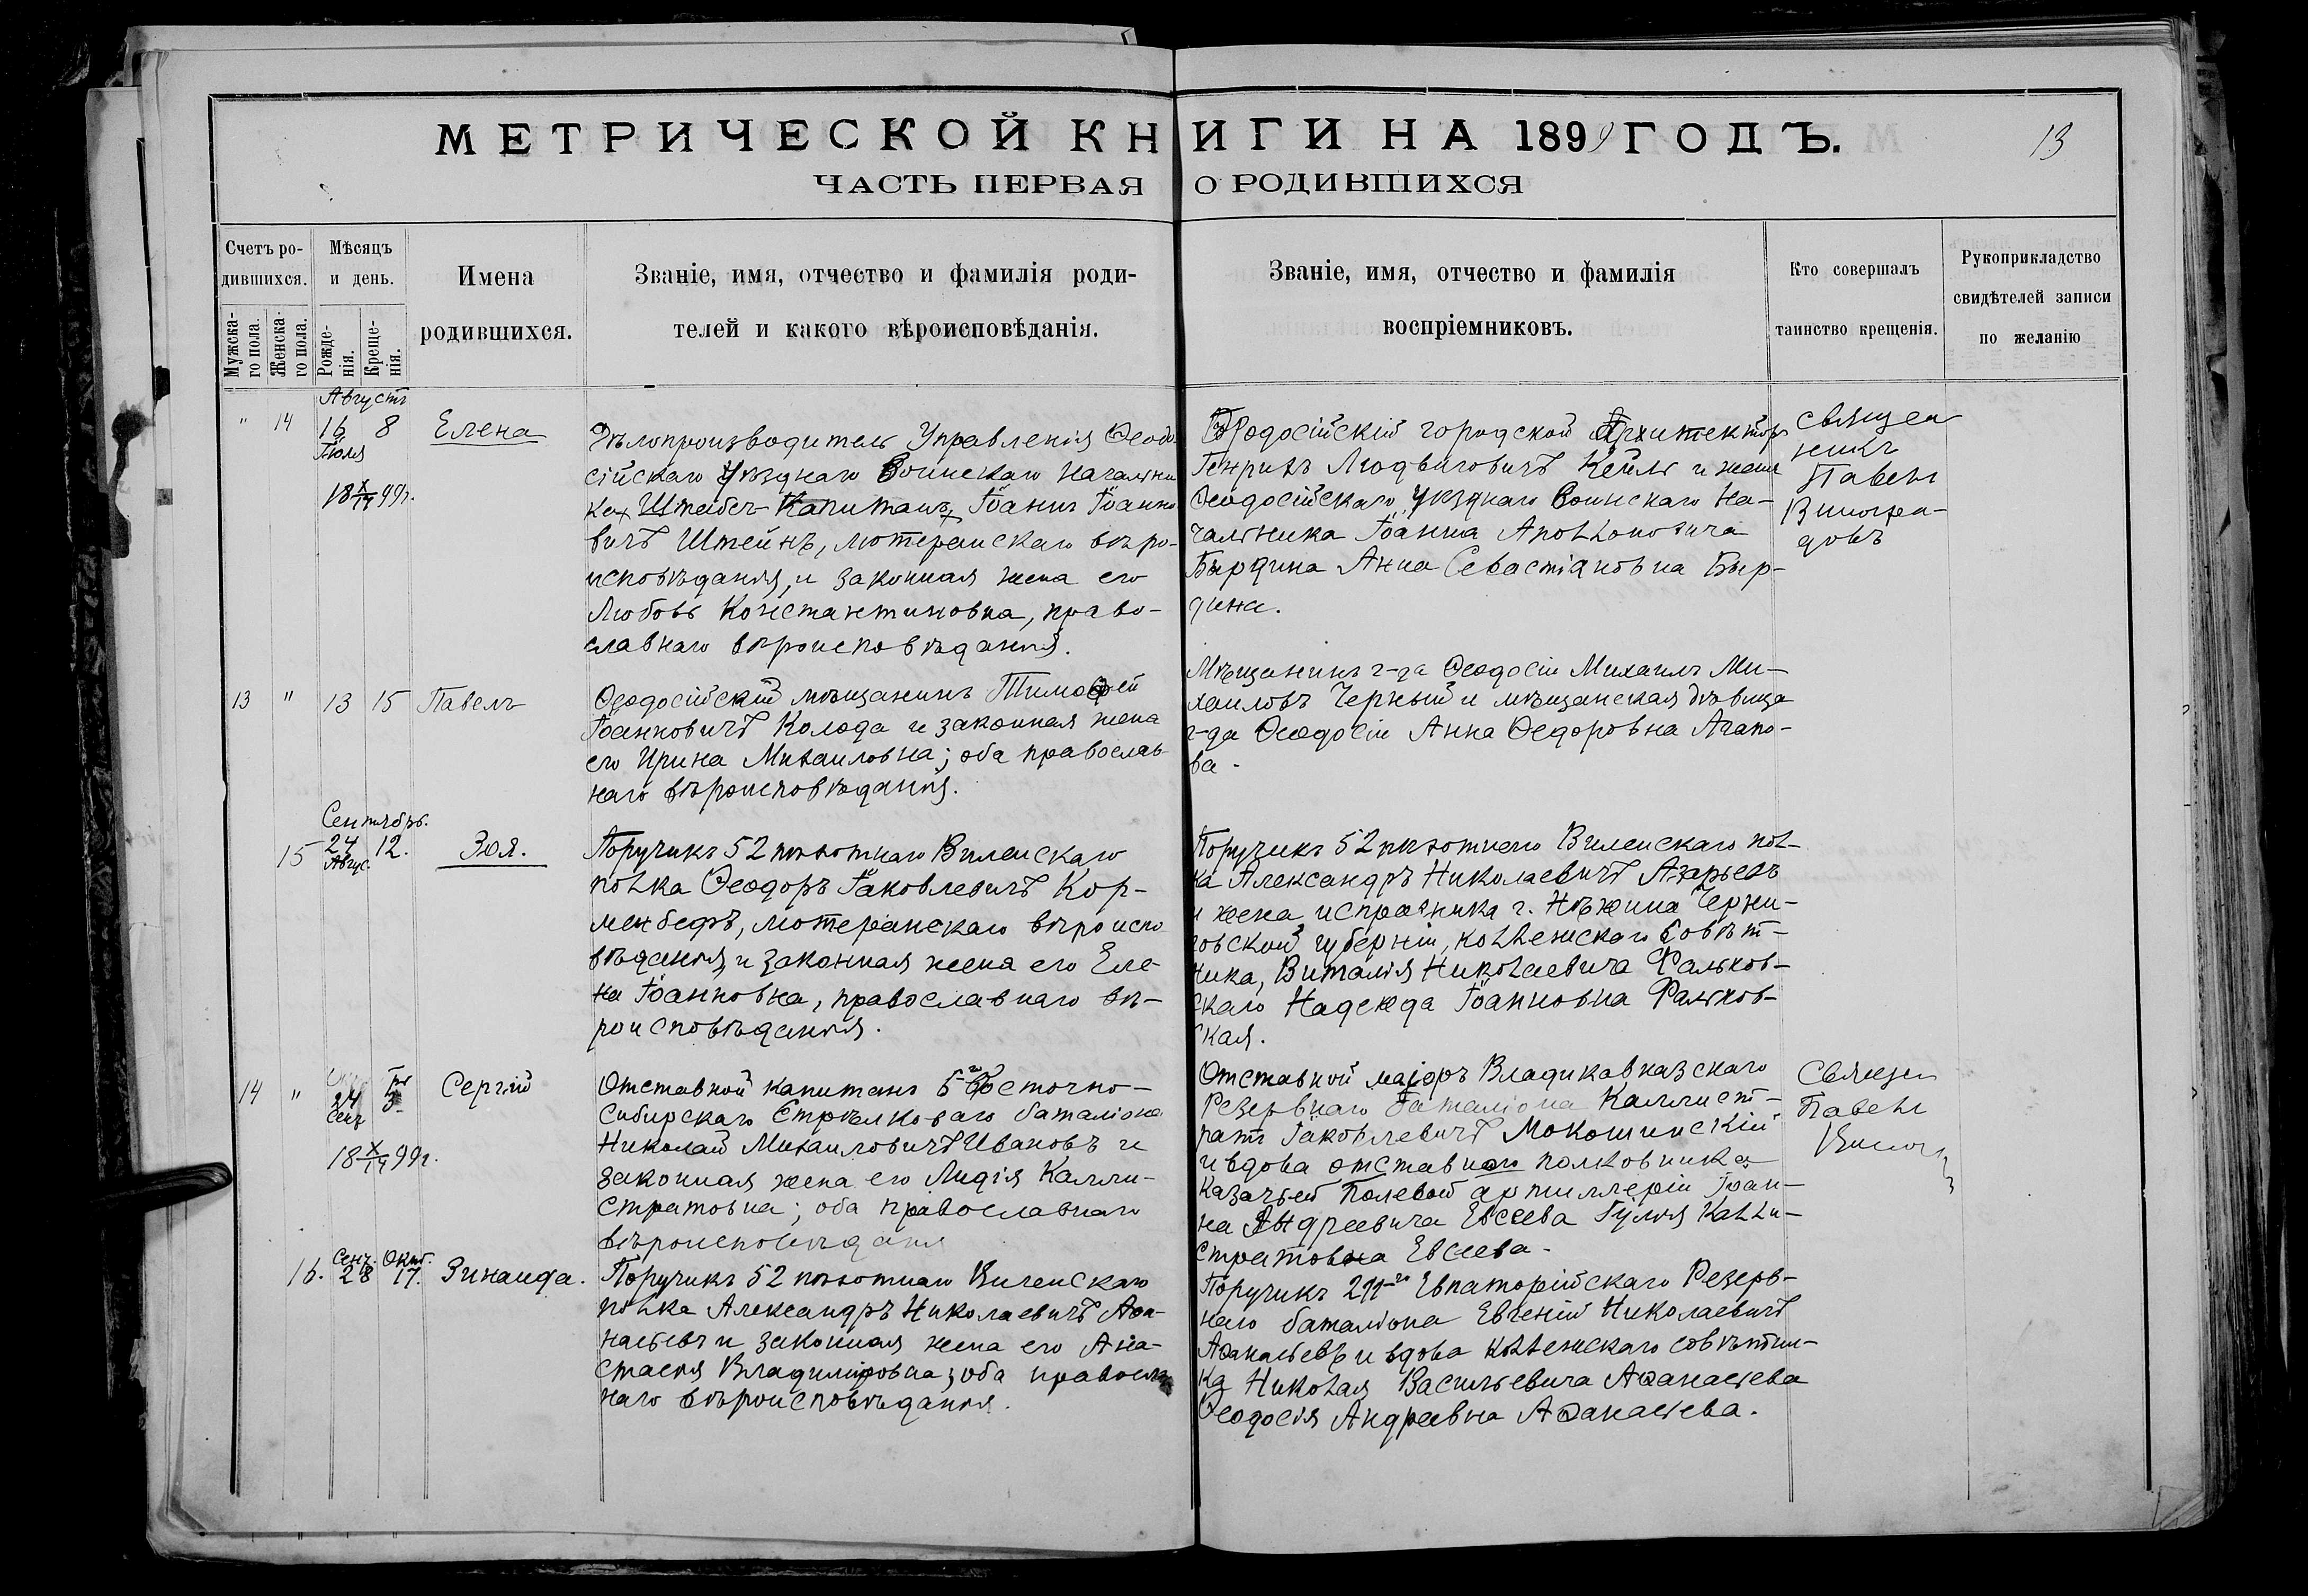 МЕТРИЧЕСКОЙ КНИГИ НА 1899 ГОДЪ.
13
ЧАСТЬ ПЕРВАЯ О РОДИВШИХСЯ
Счетъ ро-
дившихся.
Мужска-
го пола.
Женска-
го пола.
Мѣсяцъ
и день.
Рожде-
нія.
Креще-
нія.
Имена
родившихся.
Званіе, имя, отчество и фамилія роди-
телей и какого вѣроисповѣданія.
Званіе, имя, отчество и фамилія
воспріемниковъ.
Кто совершалъ
таинство крещенія.
Рукоприкладство
свидѣтелей записи
по желанію
Августъ
" 14 16 8 Елена
Іюля
18 X/14 99г.
Дѣлопроизводитель Управленія Ѳеодо-
сійскаго Уѣзднаго Воинскаго Начальни
ка Штабсъ-Капитанъ Іоаннъ Іоанно
вичъ Штейнъ, лютеранскаго вѣро-
исповѣданія, и законная жена его
Любовь Константиновна, право-
славнаго вѣроисповѣданія.
Ѳеодосійскій городской Архитекторъ
Генрихъ Людвиговичъ Кейль и жена
Ѳеодосійскаго Уѣзднаго Воинскаго На-
чальника Іоанна Аполлоновича
Бырдина Анна Севастіановна Быр-
дина.
Священ
никъ
Павелъ
Виногра-
довъ
13 " 13 15 Павелъ
Ѳеодосійскій мѣщанинъ Тимоѳей
Іоанновичъ Колода и законная жена
его Ирина Михаиловна; оба православ
наго вѣроисповѣданія.
Мѣщанинъ г-да Ѳеодосіи Михаилъ Ми-
хаиловъ Черный и мѣщанская дѣвица
г-да Ѳеодосіи Анна Ѳедоровна Агапо-
ва.
Сентябрь.
15 24 12. Зоя.
Авгус.
Поручикъ 52 пѣхотнаго Виленскаго
полка Ѳеодоръ Іаковлевичъ Кор-
менбедъ, лютеранскаго вѣроиспо
вѣданія, и законная жена его Еле-
на Іоанновна, православнаго вѣ-
роисповѣданія.
Поручикъ 52 пѣхотнаго Виленскаго пол-
ка Александръ Николаевичъ Азарьевъ
и жена исправника г. Нѣжина Черни-
говской губерніи, коллежскаго Совѣт-
ника, Виталія Николаевича Фальков-
скаго Надежда Іоанновна Фальков-
ская.
14 " 24 3 Сергій
Сен
18 X/14 99г.
Отставной капитанъ 5-го Восточно-
Сибирскаго Стрѣлковаго баталіона
Николай Михаиловичъ Ивановъ и
законная жена его Лидія Калли-
стратовна; оба православнаго
вѣроисповѣданія
Отставной маіоръ Владикавказскаго
Резервнаго баталіона Каллист-
ратъ Іаковлевичъ Мокошинскій
и вдова отставнаго полковника
Казачьей Полевой артиллеріи Іоан-
на Андреевича Евсеева Гулія Калли-
стратовна Евсеева.
Священ
Павелъ
Виног
Сент. Окт.
16. 28 17. Зинаида.
Поручикъ 52 пѣхотнаго Виленскаго
полка Александръ Николаевичъ Аѳа-
насьевъ и законная жена его Ана-
стасія Владиміровна; оба православ
наго вѣроисповѣданія.
Поручикъ 211-го Евпаторійскаго Резерв-
наго баталіона Евгеній Николаевичъ
Аѳанасьевъ и вдова коллежскаго совѣтни-
ка Николая Васильевича Аѳанасьева
Ѳеодосія Андреевна Аѳанасьева.